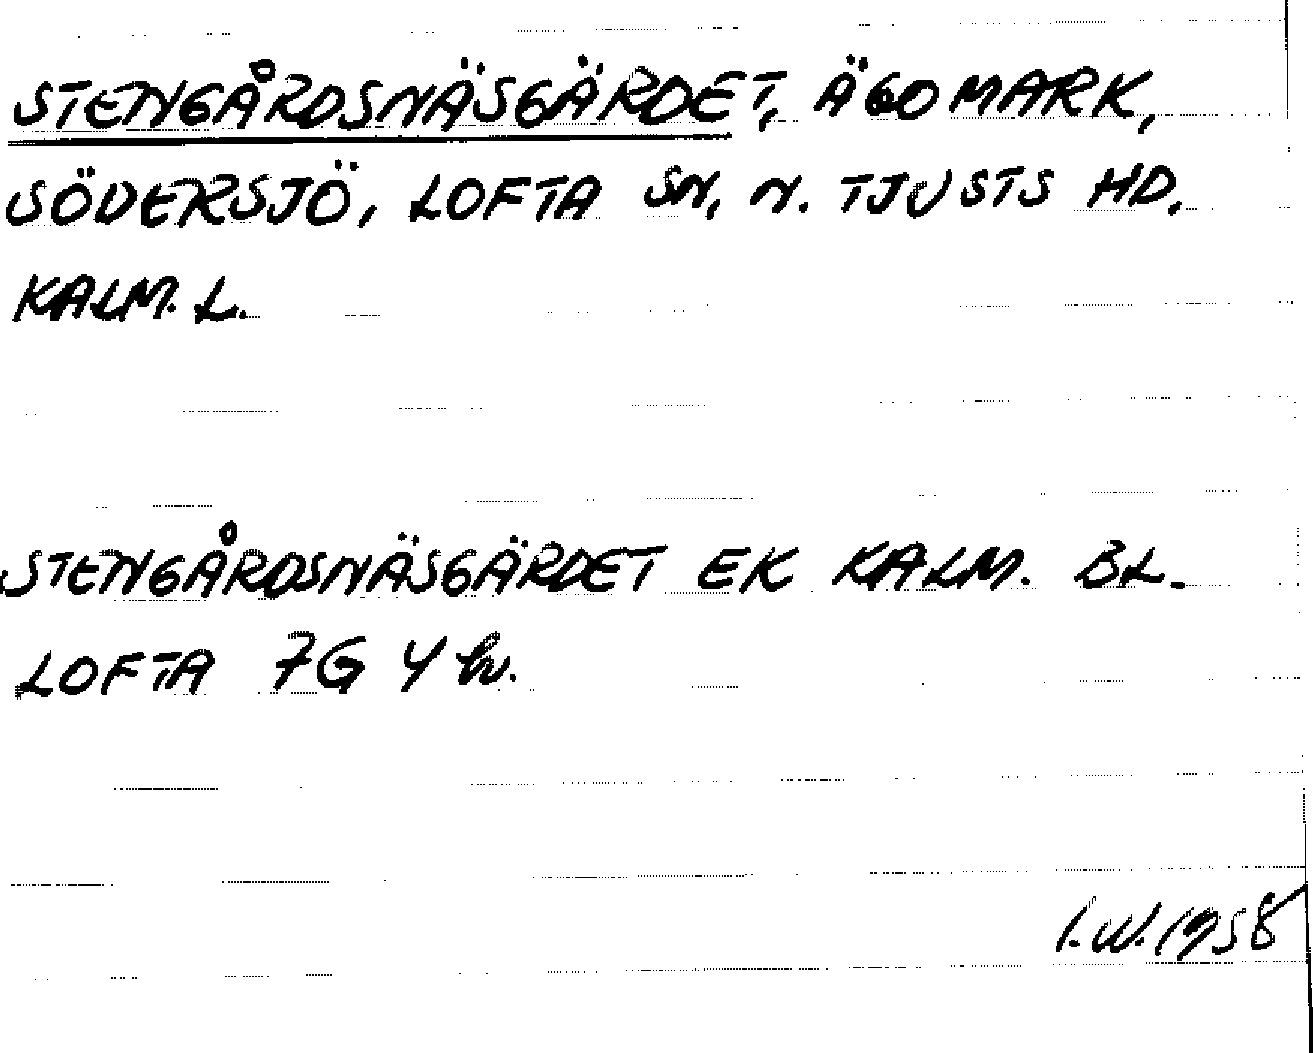 STENGÅRDSNÄSGÄRDET, ÄGOMARK,
SÖDERSJÖ, LOFTA SN, N. TJUSTS HD.
KALM. L.
STENGÅRDSNÄSGÄRDET EK KALM. BL.
LOFTA 7G 4
I.W. 1958